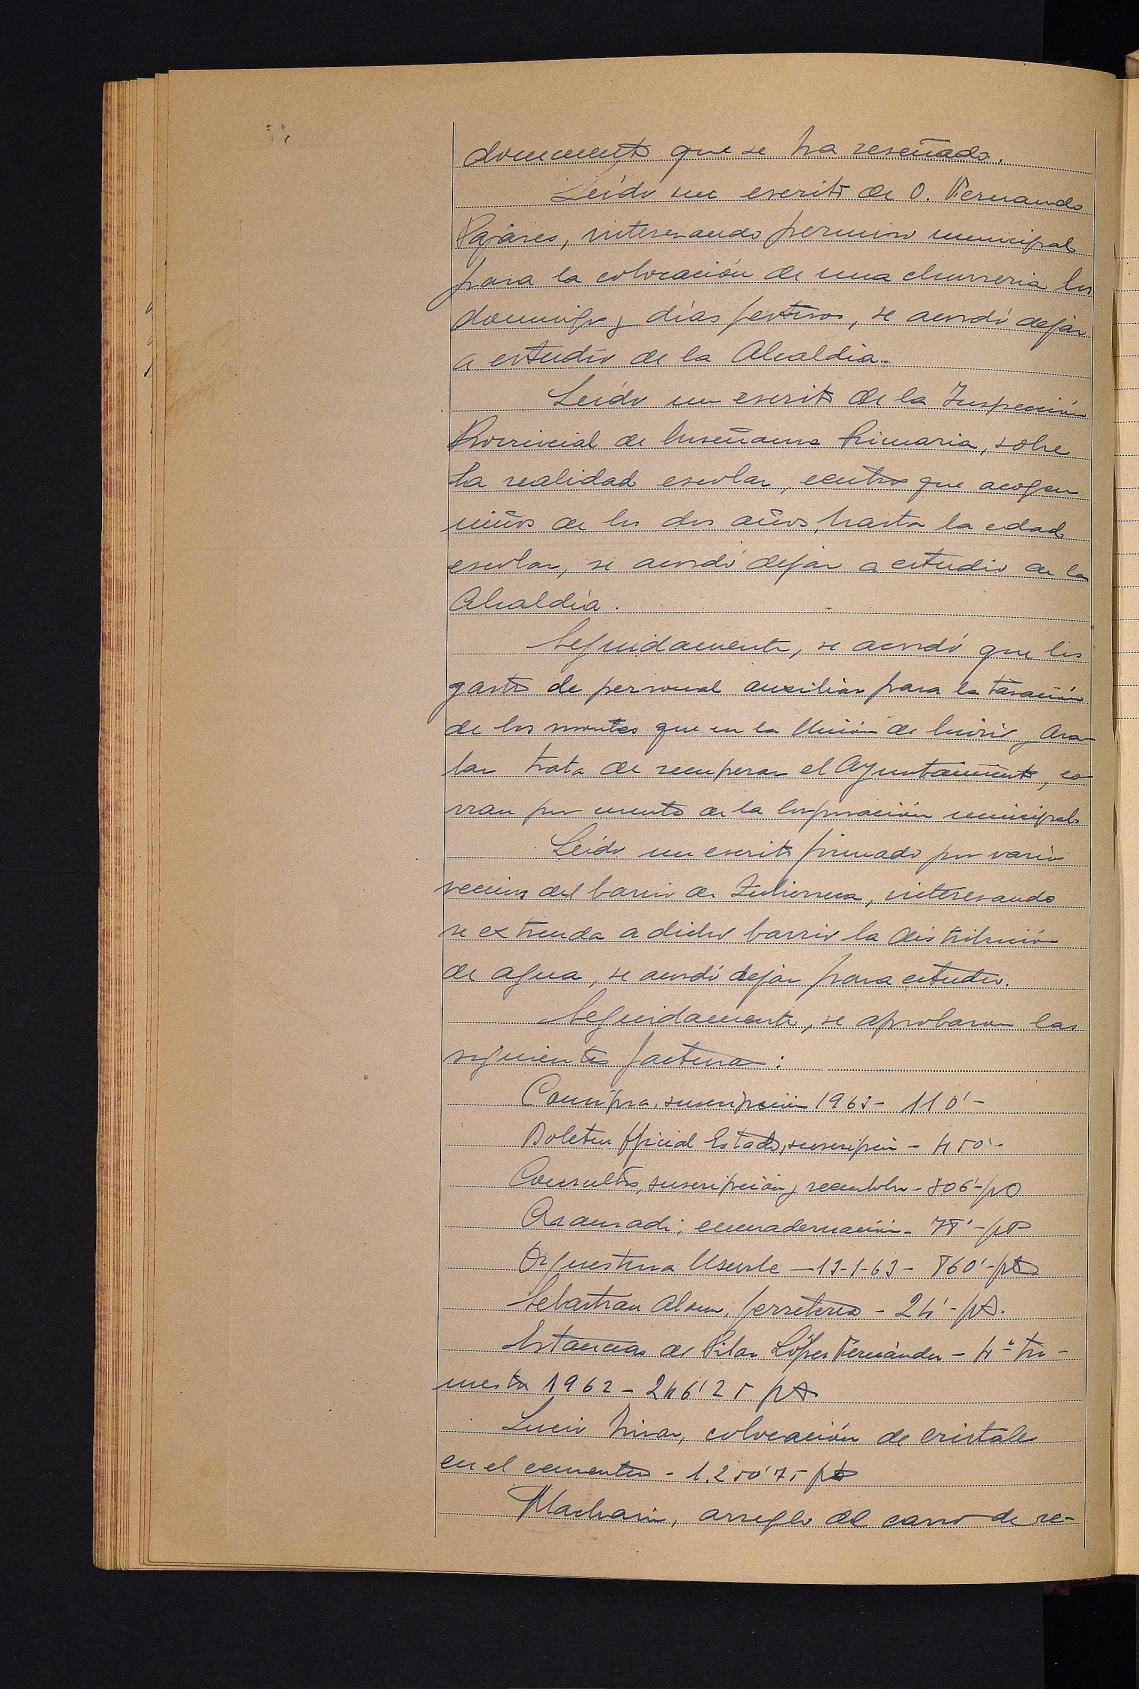 documento que se ha reseñado.
Leído un escrito de D. Fernando
Pajares, interesando permiso municipal
para la colocación de una churreria los
domingos y días festivos, se acordó dejar
a estudio de la Alcaldia.
Leído un escrito de la Inspección
Provincial de Enseñanza Primaria, sobre
la realidad escolar, centros que acogen
niños de los dos años hasta la edad
escolar, se acordó dejar a estudio de la
Alcaldía.
Seguidamente, se acordó que los
gastos de personal auxiliar para la tasación
de los montes que en la Unión de Enirio y Ara-
lar trata de recuperar el Ayuntamiento, co-
rran por cuenta de la Corporación municipal.
Leído un escrito firmado por varios
vecinos del barrio de, interesando
se extienda a dicho barrio la distribución
de agua, se acordó dejar para estudio.
Seguidamente, se aprobaron las
siguientes facturas:
suscripción 1963 - 110'-
Boletin Oficial Estado, suscripción - 450'-
Consultor, suscripción y - 806'- pts
Aranzadi; encuadernación - 78'- pts
Orquestina - 13-1-63 - 860'- pts
Sebastian, ferreteria - 24'- pts.
Estancias de Pilar López Fernández - 4º tri-
mestre 1962 - 246'25 pts
Lucio, colocación de cristales
en el cementerio - 1.250'75 pts
arreglo del carro de re-